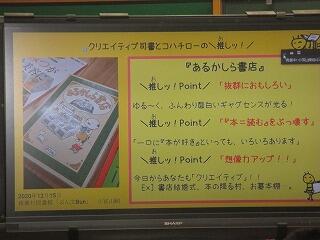 クリエイティブ司書とコハチローの＼推しッ！／
お
『あるかしら書店』
＼推しッ！Point／ 「抜群におもしろい」
お
ゆる～く、ふんわり面白いギャグセンスが光る！
＼推しッ！Point／ 『本＝読む』をぶっ壊す」
お
「一口に『本が好き』といっても、いろいろあります」
＼推しッ！Point／ 「想像力アップ！！」
お
今日からあなたも「クリエイティブ」！！
EX］書店結婚式、本の降る村、お墓本棚…。
あるかしら書店
2020年12月15日
SHARP